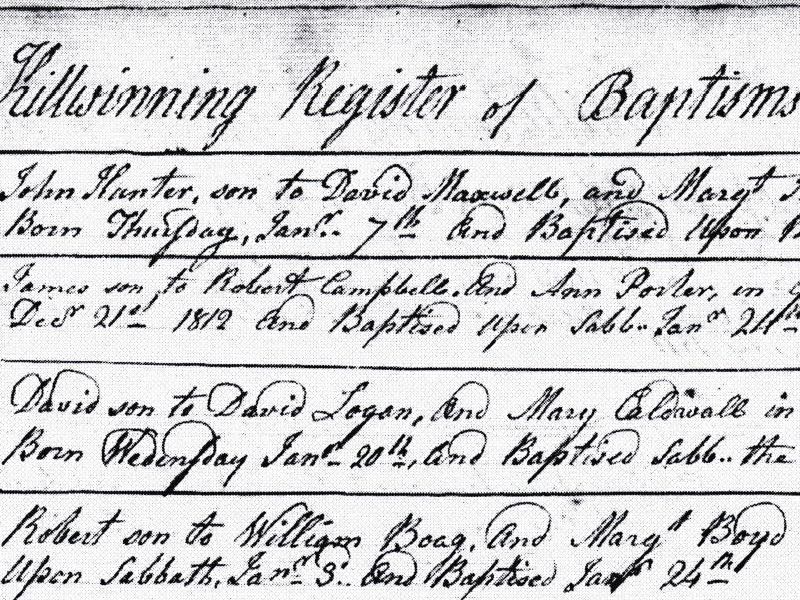 Killwinning Register of Baptisms
John Hunter, son to David Maxwell, and Margt
Born Thursday, Janr. 7th And Baptised Upon
James son to Robert Campbell. And Ann Porter, in
Decr 21st 1812 And Baptised Upon Sabb.. Janr 24th
David son to David Logan, And Mary Caldwall in
Born Wednesday Janr 20th, And Baptised Sabb.. the
Robert son to William Boag, And Margt Boyd
Upon Sabbath, Janr 3d.. And Baptised Janr 24th